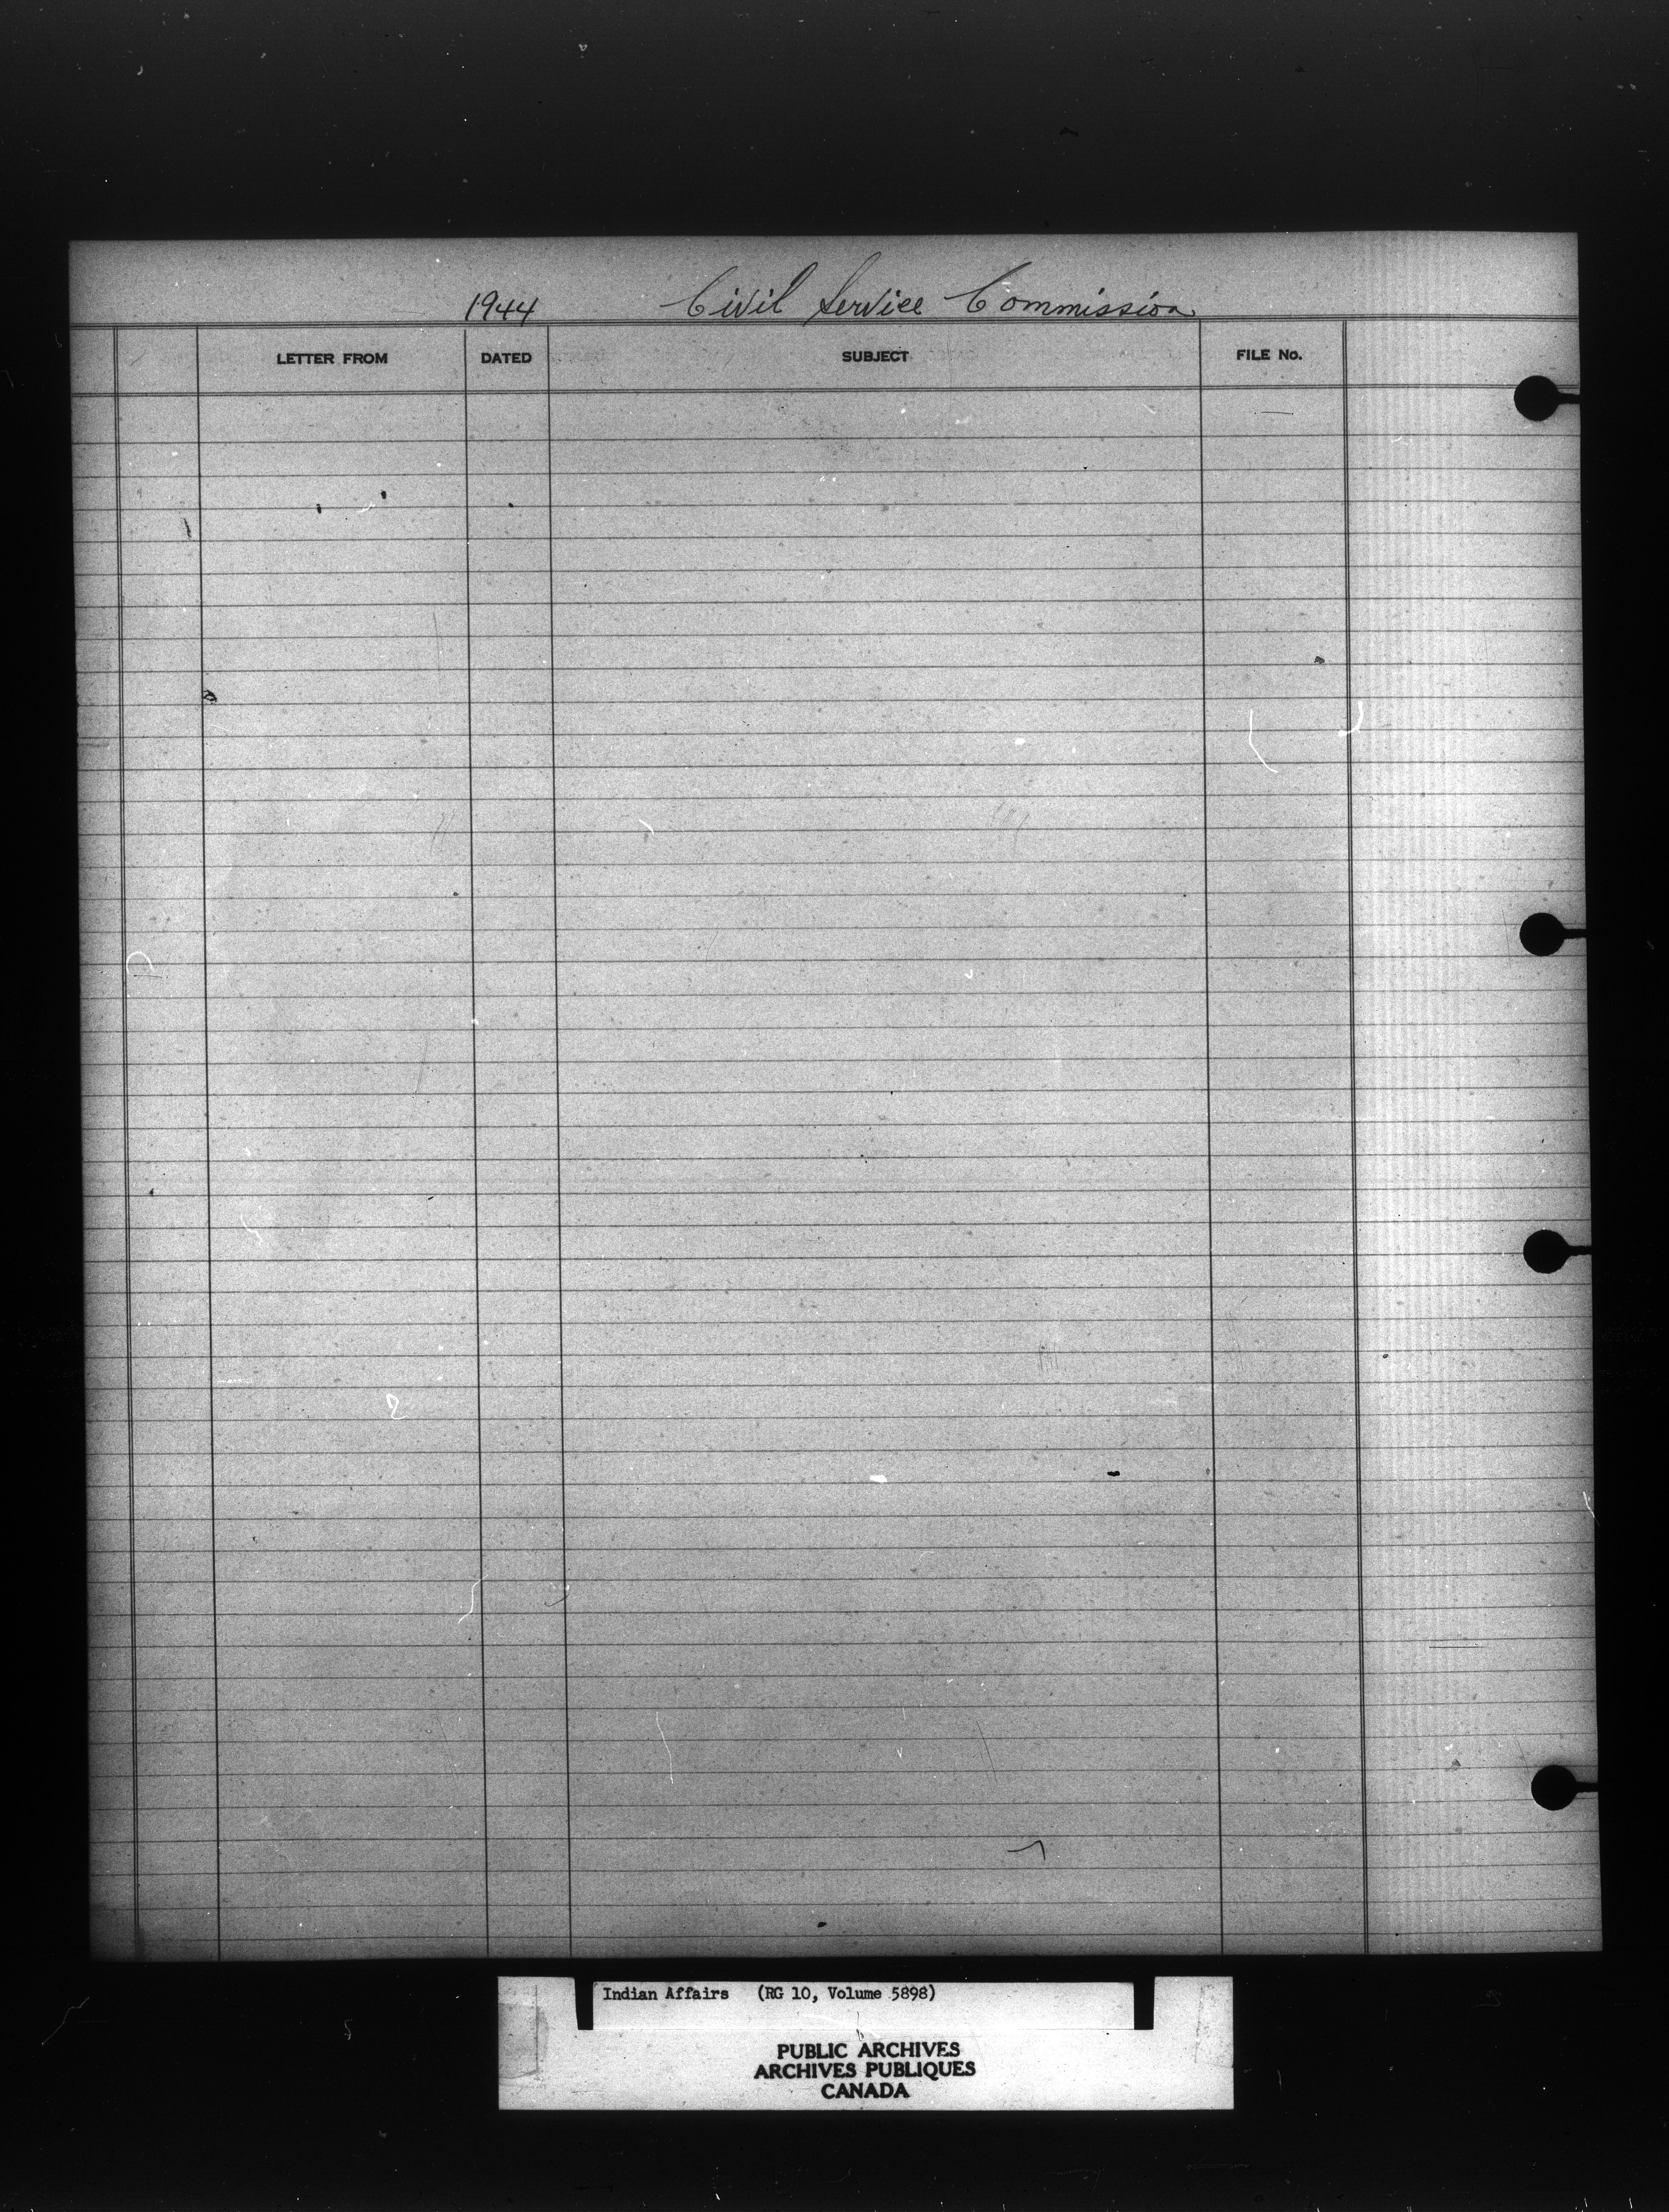 1944 Civil Service Commission
LETTER FROM DATED SUBJECT FILE No.
Indian Affairs (RG 10, Volume 5898)
PUBLIC ARCHIVES
ARCHIVES PUBLIQUES
CANADA